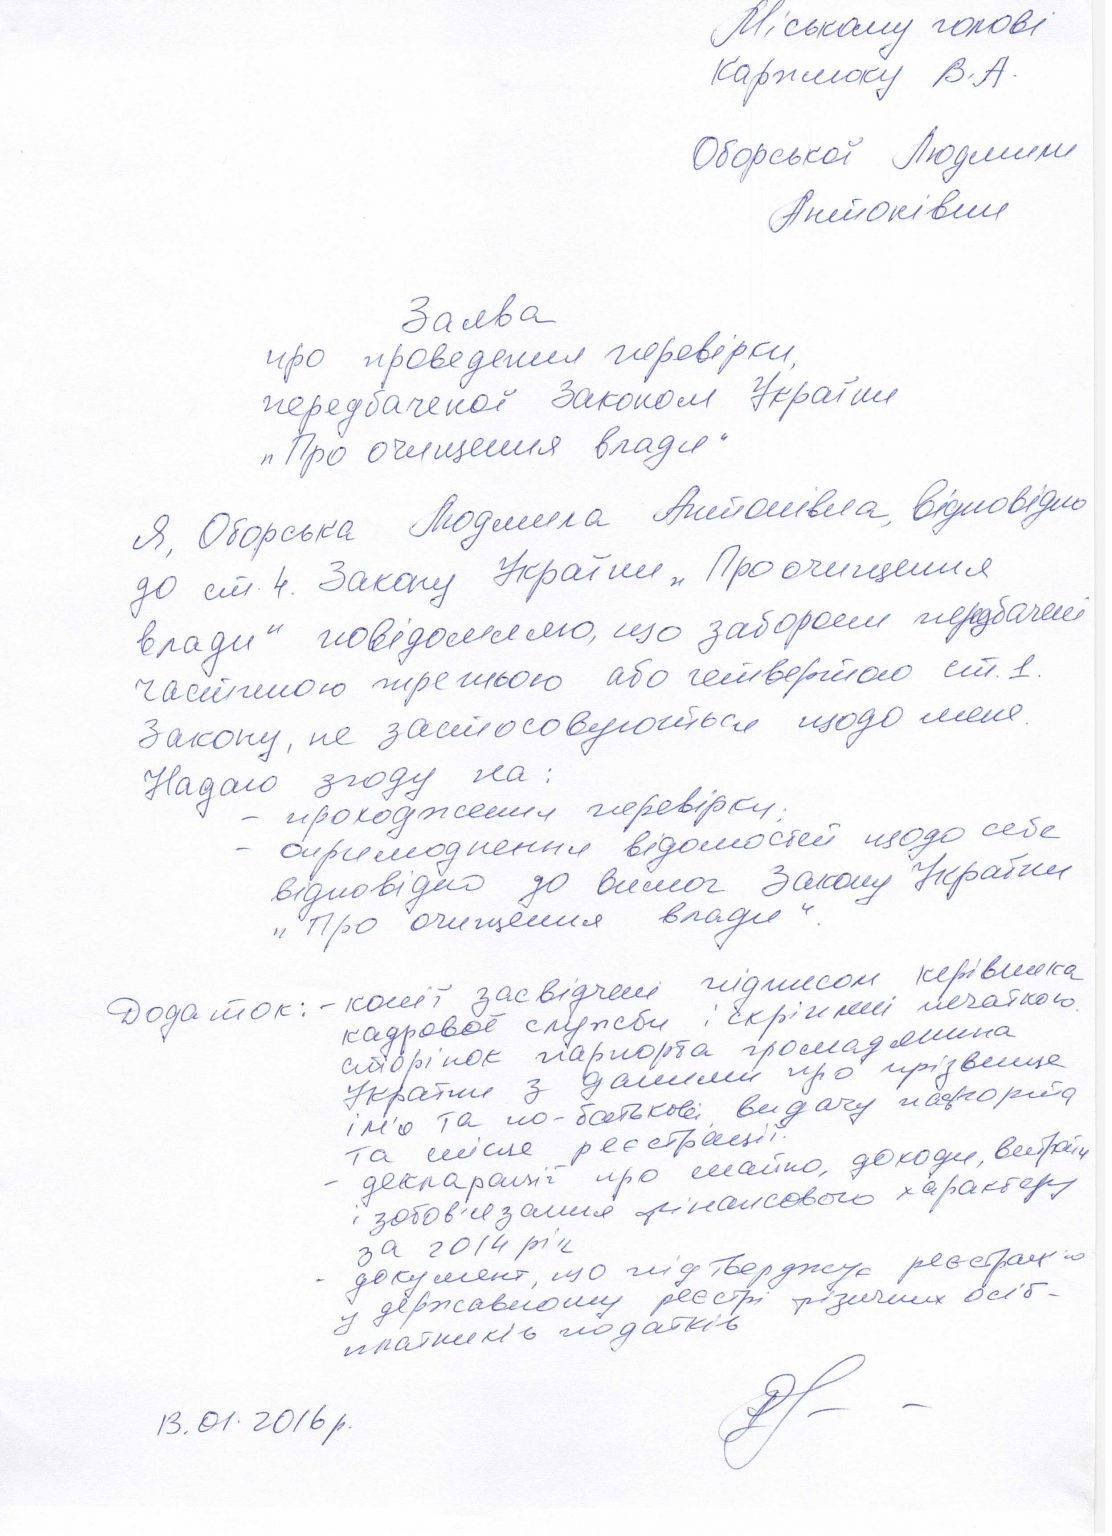 Міському голові
Карплюку В.А.
Оборської Людмили
Антонівни
Заява
про проведення перевірки,
передбаченої Законом України
„Про очищення влади"
Я, Оборська Людмила Антонівна, відповідно
до ст. 4. Закону України „Про очищення
влади" повідомляю, що заборони передбачені
частиною третьою або четвертою ст. 1.
Закону, не застосовуються щодо мене.
Надаю згоду на:
- проходження перевірки;
- оприлюднення відомостей щодо себе
відповідно до вимог Закону України
„Про очищення влади".
Додаток: - копії засвідчені підписом керівника
кадрової служби і скріплені печаткою
сторінок паспорта громадянина
України з даними про прізвище
ім'я та по-батькові видачу паспорта
та місце реєстрації.
- декларації про майно, доходи, витрати
і зобов'язання фінансового характеру
за 2014 рік
- документ, що підтверджує реєстрацію
у державному реєстрі фізичних осіб-
платників податків
13.01.2016 р.